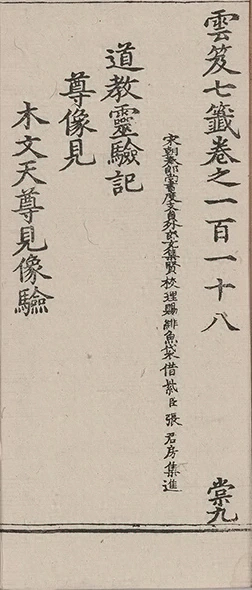 雲笈七籤卷之一百一十八
棠九
宋朝奉郎尚書度支員外郎充集賢校理賜緋魚袋借紫臣張君房集進
道教靈驗記
尊像見
木文天尊見像驗